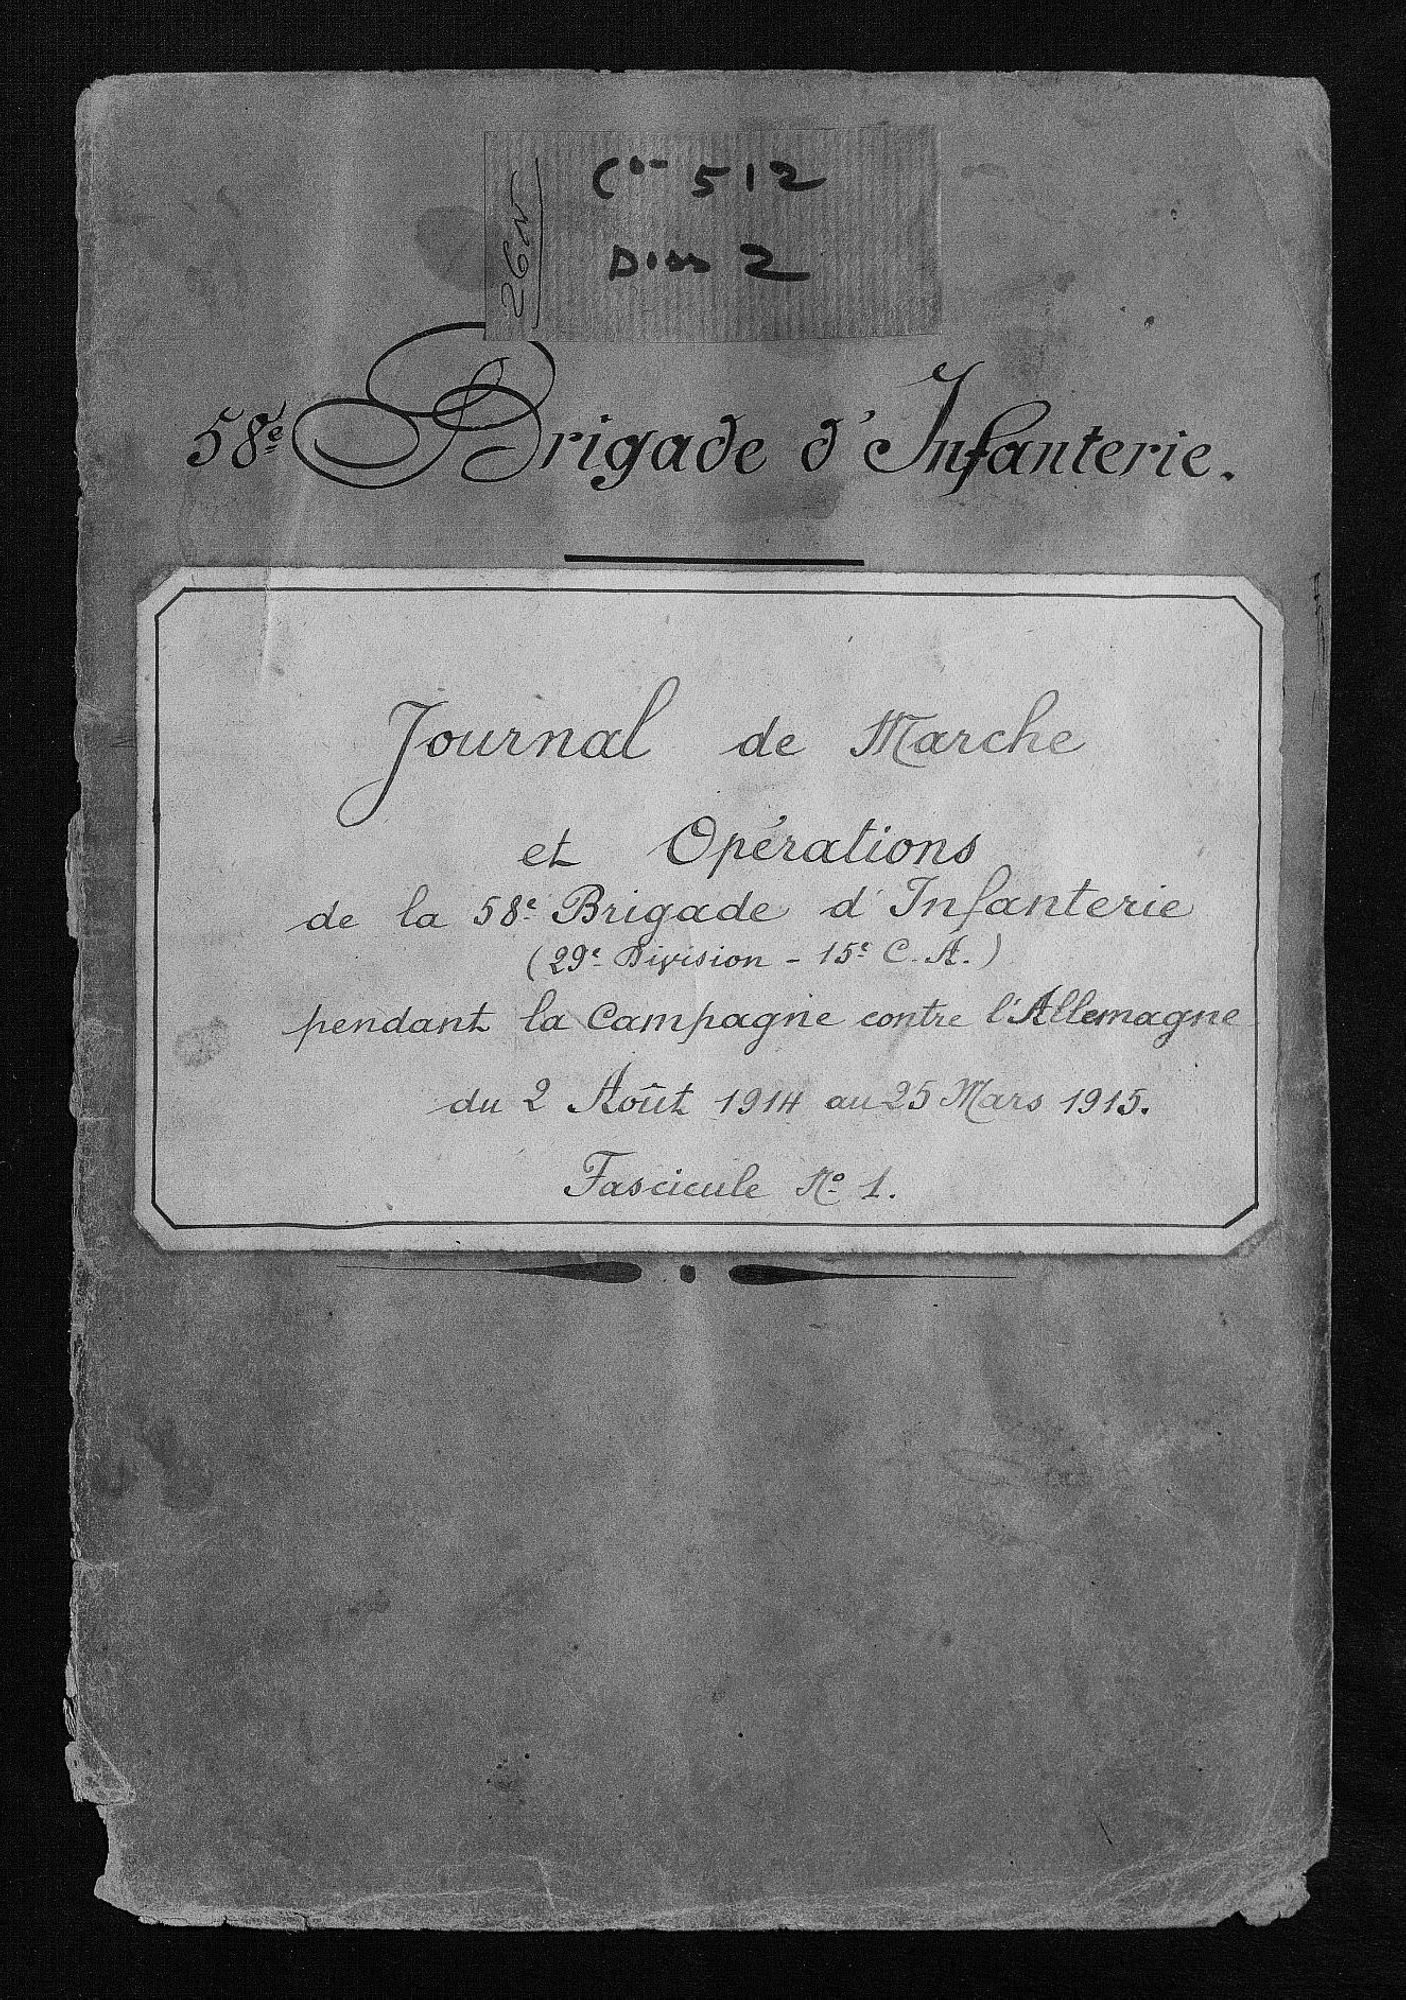 Con 512
26N
Doss 2
58e Brigade d'Infanterie.
Journal de Marche
et Opérations
de la 58e Brigade d'Infanterie
(29e Division - 15e C. A.)
pendant la Campagne contre l'Allemagne
du 2 Août 1914 au 25 Mars 1915.
Fascicule No 1.